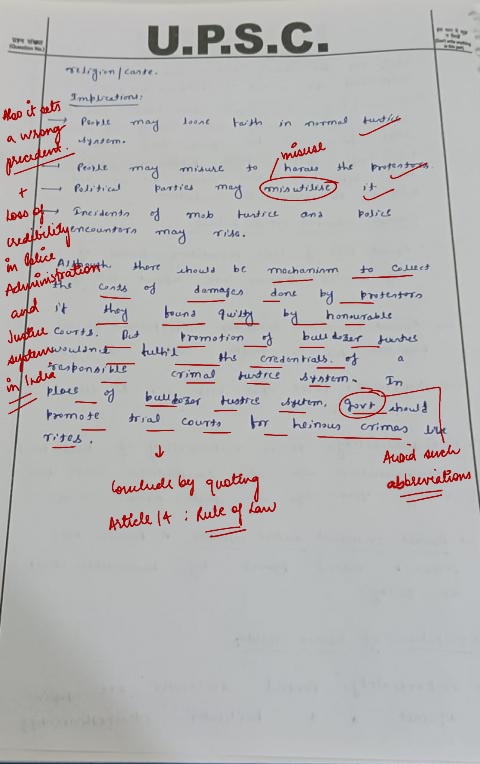 U.P.S.C.
प्रश्न संख्या
(Question No.)
religion/caste.
Implications:
→ People may loose faith in normal justice
system.
→ People may misuse to harass the protestors
→ Political parties may misutilise it
→ Incidents of mob justice and police
encounters may rise.
Although there should be mechanism to collect
the costs of damages done by protestors
if they found guilty by honourable
courts. But promotion of bulldozer justice
wouldn't fulfil the credentials of a
responsible criminal justice system. In
place of bulldozer justice system, govt should
promote trial courts for heinous crimes like
rites.
Also it sets
a wrong
precedent.
+
Loss of
credibility
in Police
Administration
and
Justice
system
in India
misuse
Avoid such
abbreviations
↓
Conclude by quoting
Article 14 : Rule of Law